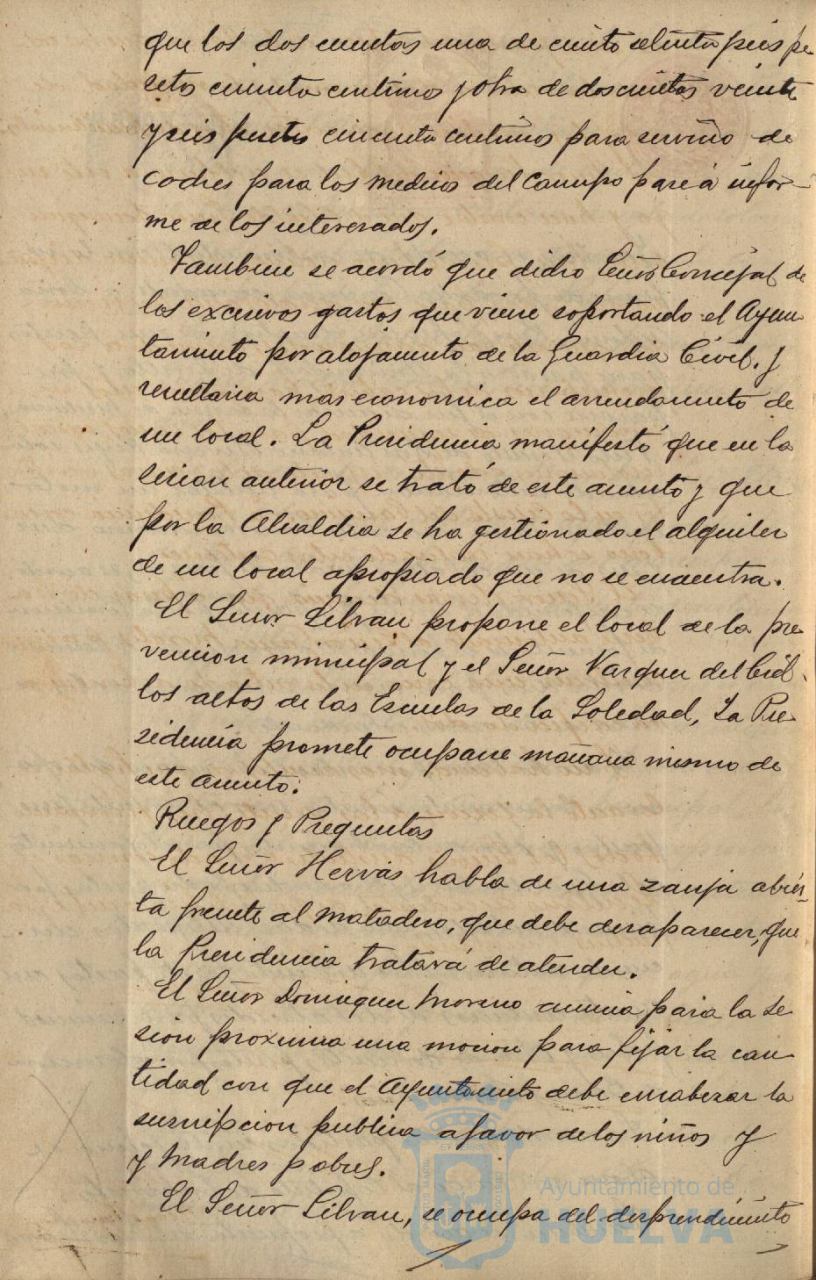 que los dos cuentas una de ciento setenta y seis pe
setas cincuenta centimos y otra de doscientos veinte
y seis pesetas cincuenta centimos para servicio de
coches para los medicos del Campo pase á infor-
me de los interesados.
Tambien se acordó que dicho Señor Concejal de
los excesivos gastos que viene soportando el Ayun
tamiento por alojamento de la Guardia Civil. y
resultaria mas economica el arrendamiento de
un local. La Presidencia manifestó que en la
sesion anterior se trató de este asunto y que
por la Alcaldia se ha gestionado el alquiler
de un local apropiado que no se encuentra.
El Señor Silvan propone el local de la pre
vencion municipal y el Señor Vazquez del Cid
los altos de las Escuelas de la Soledad, La Pre
sidencia promete ocuparse mañana mismo de
este asunto.
Ruegos y Preguntas
El Señor Hervás habla de una zanja abier
ta frente al matadero, que debe desaparecer, que
la Presidencia tratará de atender.
El Señor Dominguez Moreno anuncia para la se
sion proxima una mocion para fijar la can
tidad con que el Ayuntamiento debe encabezar la
suscripcion publica a favor de los niños y
y Madres pobres.
El Señor Silvan, se ocupa del desprendimiento
Ayuntamiento de
HUELVA